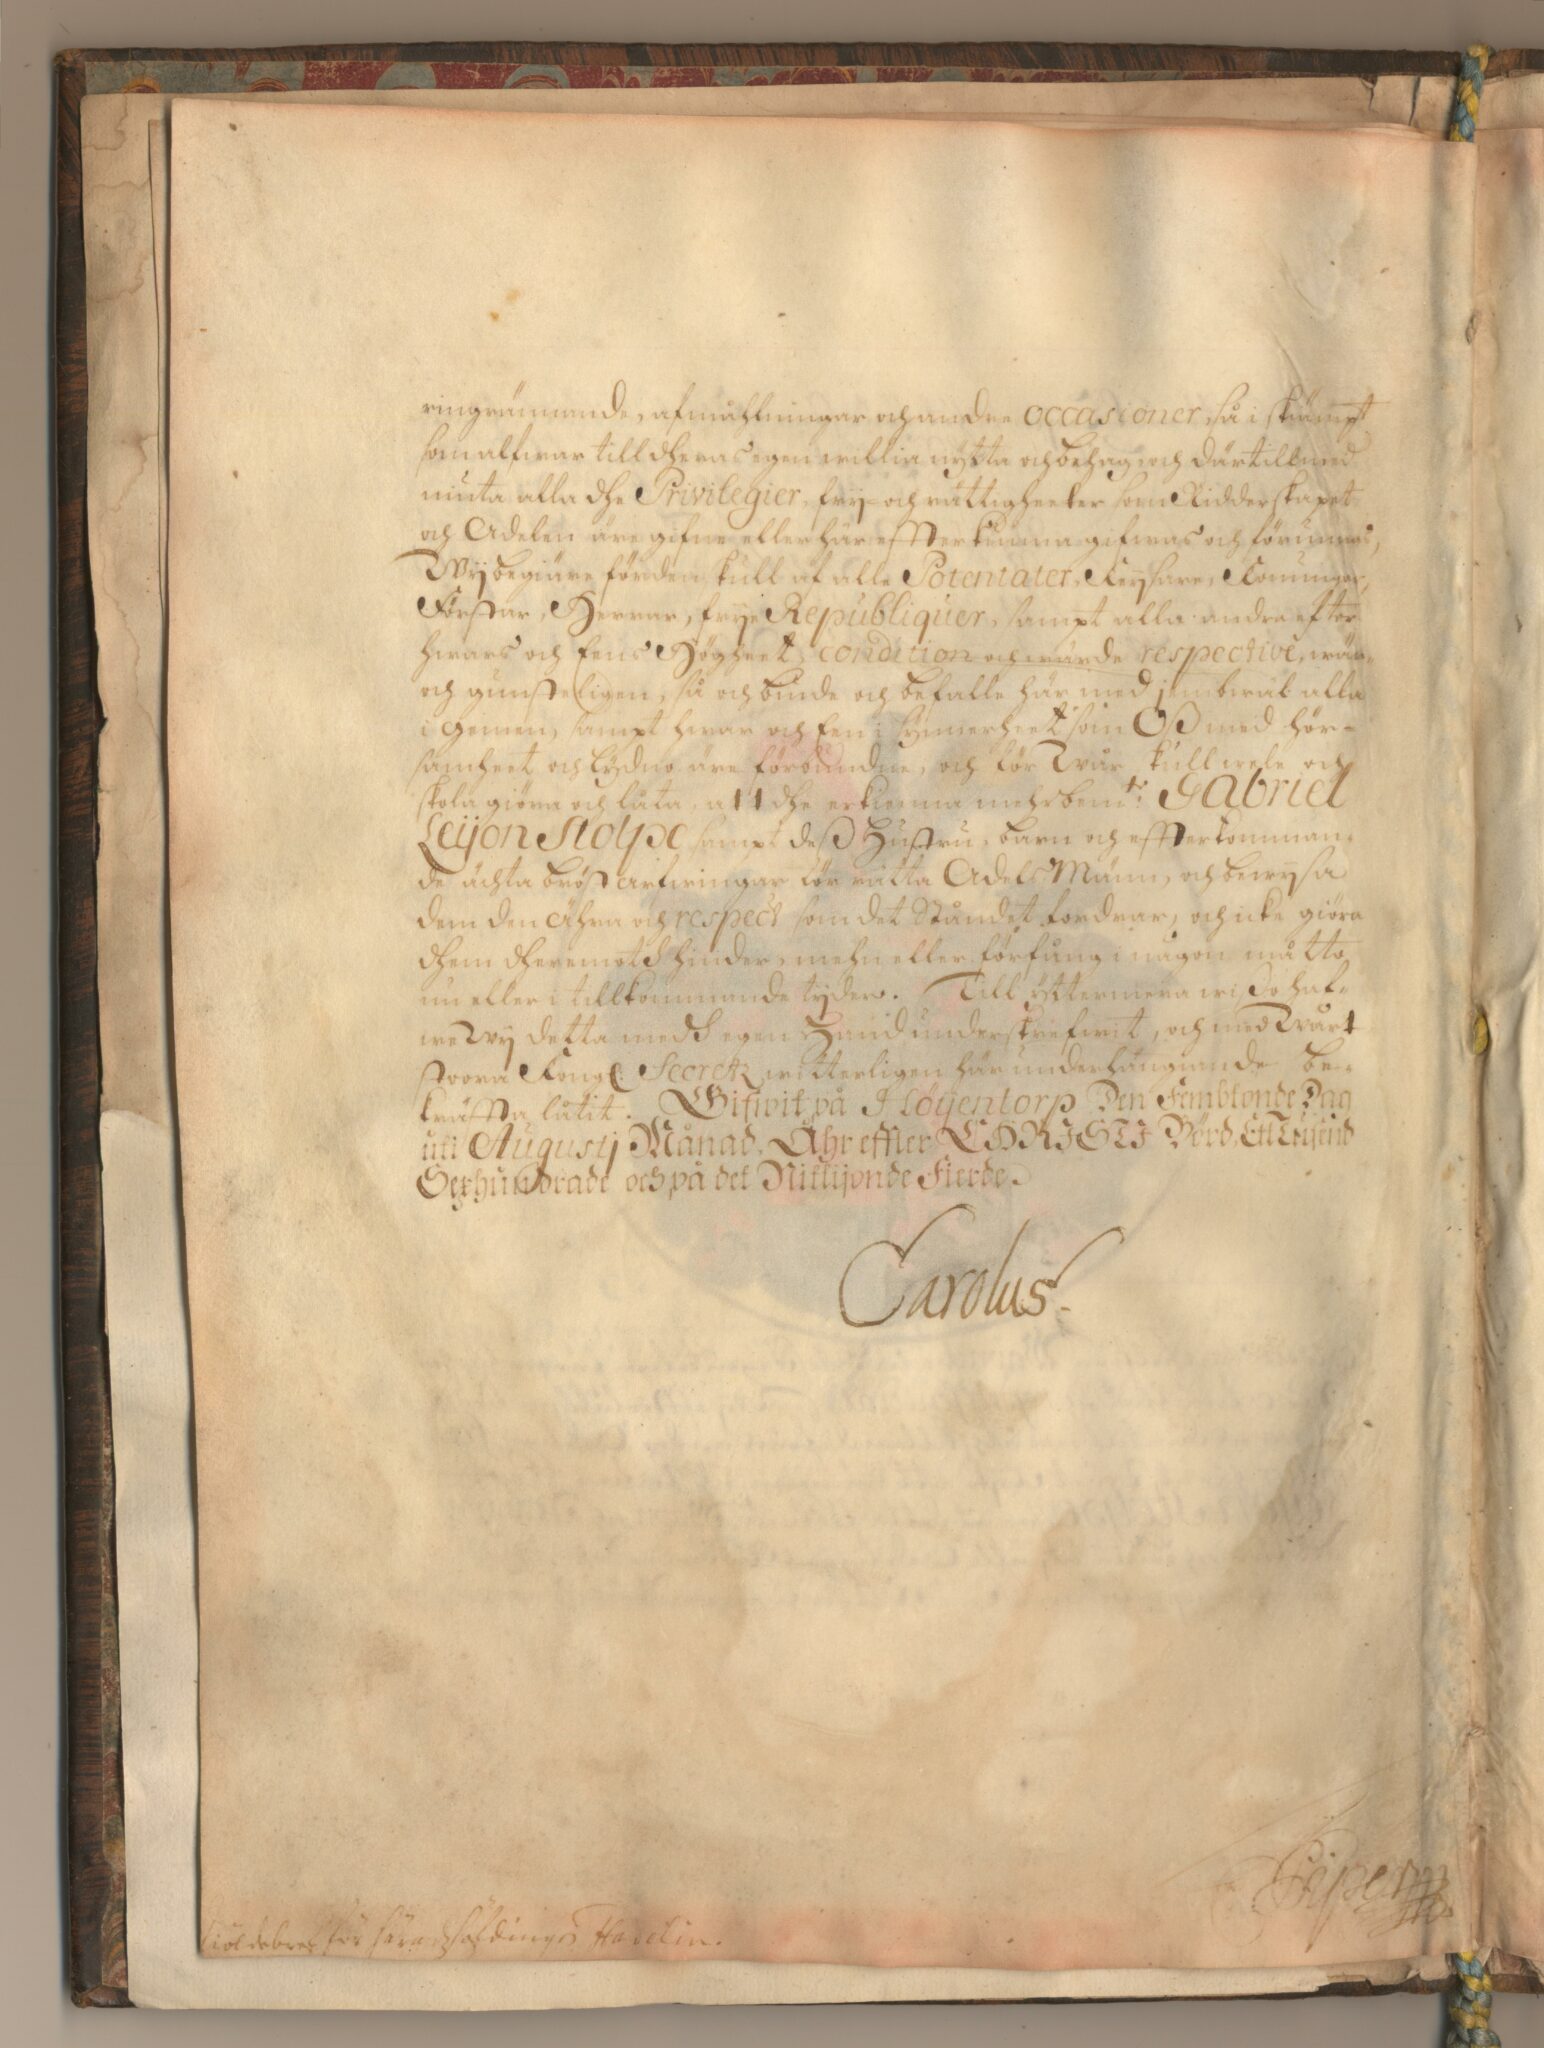 ringrännande, afmåhlningar och andre occasioner, så i skiämpt
som alfwar till dheras egen willia nytta och behag, och därtill med
niuta alla dhe Privilegier, frij- och rättigheeter som Ridderskapet
och Adelen äre gifne eller här effter kunna gifwas och förunnas,
Wij begiäre förden skull af alle Potentater, Keijsare, Konungar,
Förstar, Herrar, frije Republiquer, sampt alla andre efter
hwars och Eens Högheet, condition och wärde respective, wän-
och gunsteligen, så och biude och befalle här med jembwäl alla
i gemen, sampt hwar och Een i synnerheet som Oß med hör-
samheet och lydno äre förbundne, och för Wår skull wele och
skola giöra och låta, att dhe erkienna mehrbem:te Gabriel
Leijon Stolpe sampt deß Hustru, barn och effterkomman-
de ächta bröst arfwingar för rätta Adels Männ, och bewijsa
dem den Ähra och respect som det Ståndet fordrar, och icke giöra
dhem dheremoth hinder, mehn eller förfång i någon måtto
nu eller i tillkommande tijder. Till yttermera wißo haf-
we Wij detta medh egen Hand underskrefwit, och med Wårt
stoora Kongl: Secretz witterligen här underhängiande be-
kräffta låtit. Gifwit på Höijentorp Den Fembtonde Dag
uti Augustij Månad, Åhr effter CHRISTI Börd, Ett Tusend
Sexhundrade och på det Nittijonde Fierde.
Carolus.
Piper
Sköldebref för häradzhöfdingen Havelin.